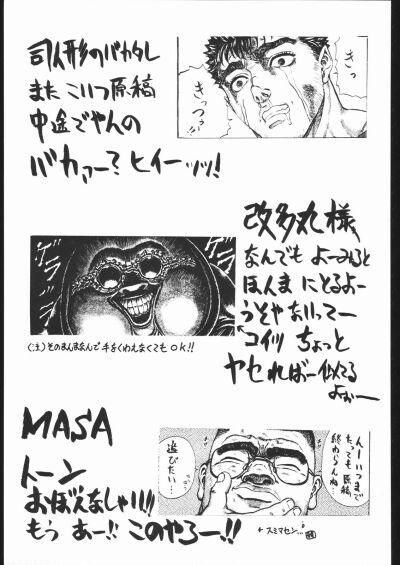 司人形のバカタレ
また こいつ原稿
中途でやんの
バカァー？ヒイーッッッ！
きっ
きっつ〜
改多丸様
なんでも よーみると
ほんま にとるよー
うそやないってー
コイツ ちょっと
ヤセればー似てる
よぉー
(注)そのまんまなんで手をくわえなくてもOK!!
MASA
トーン
おぼえなしゃい!!
もう あー!! このやろー!!
んーいつまで
たっても原稿
終わらんね…
遊びたい…
←スミマセン…